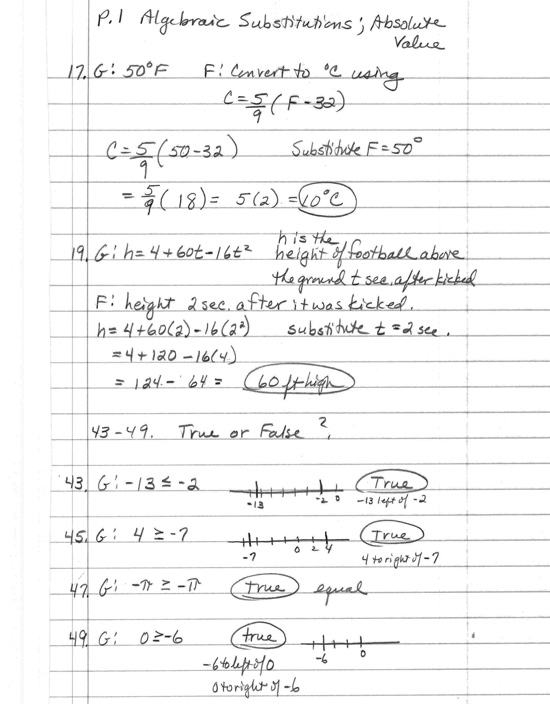 P.1 Algebraic Substitutions; Absolute
Value
17. G: 50°F F: Convert to °C using
C = 5/9 (F - 32)
C = 5/9 (50 - 32) Substitute F = 50°
= 5/9 (18) = 5(2) = 10°C
19. G: h = 4 + 60t - 16t² h is the height of football above
the ground t sec. after kicked
F: height 2 sec. after it was kicked.
h = 4 + 60(2) - 16(2²) substitute t = 2 sec.
= 4 + 120 - 16(4)
= 124 - 64 = 60 ft high
43-49. True or False?
43. G: -13 ≤ -2 -13 -2 0 True
-13 left of -2
45. G: 4 ≥ -7 -7 0 2 4 True
4 to right of -7
47. G: -π ≥ -π true equal
49. G: 0 ≥ -6 true -6 0
-6 to left of 0
0 to right of -6